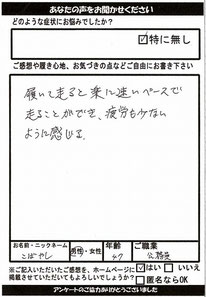 あなたの声をお聞かせください
どのような症状にお悩みでしたか?
☑特に無し
ご感想や履き心地、お気づきの点などご自由にお書き下さい
履いて走ると楽に速いペースで
走ることができ、疲労も少ない
ように感じる。
お名前・ニックネーム 年齢 ご職業
こばやし 男性・女性 47 公務員
※ご記入いただいたご感想を、ホームページに ☑はい □いいえ
掲載させていただいてもよろしいでしょうか? □匿名ならOK
アンケートのご協力ありがとうございました